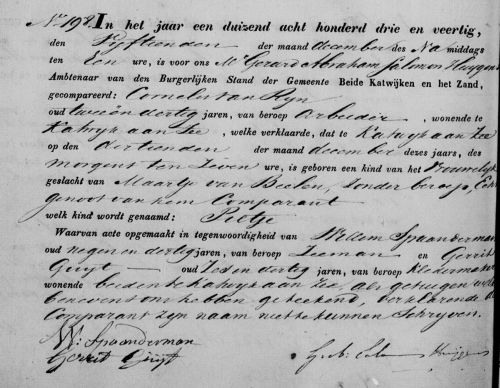 No. 198. In het jaar een duizend acht honderd drie en veertig,
den Vyftienden der maand december des Na middags
ten Een ure, is voor ons Mr. Gerard Abraham Salomon
Ambtenaar van den Burgerlijken Stand der Gemeente Beide Katwijken en het Zand,
gecompareerd: Cornelis van Ryn
oud twee en dertig jaren, van beroep Arbeider, wonende te
Katwyk aan Zee, welke verklaarde, dat te Katwyk aan Zee
op den dertienden der maand december dezes jaars, des
morgens ten Zeven ure, is geboren een kind van het Vrouwelyk
geslacht van Maartje van Beelen, Zonder beroep, Echt
genoot van hem Comparant
welk kind wordt genaamd: Pietje
Waarvan acte opgemaakt in tegenwoordigheid van Willem Spaanderman
oud negen en dertig jaren, van beroep Zeeman en Gerrit
Guyt oud Zes en dertig jaren, van beroep Kleermaker
wonende beiden te Katwyk aan Zee, als getuigen welke
benevens ons hebben geteekend, verklarende de
Comparant zyn naam niet te kunnen Schryven.
W: Spaanderman
Gerrit Guijt